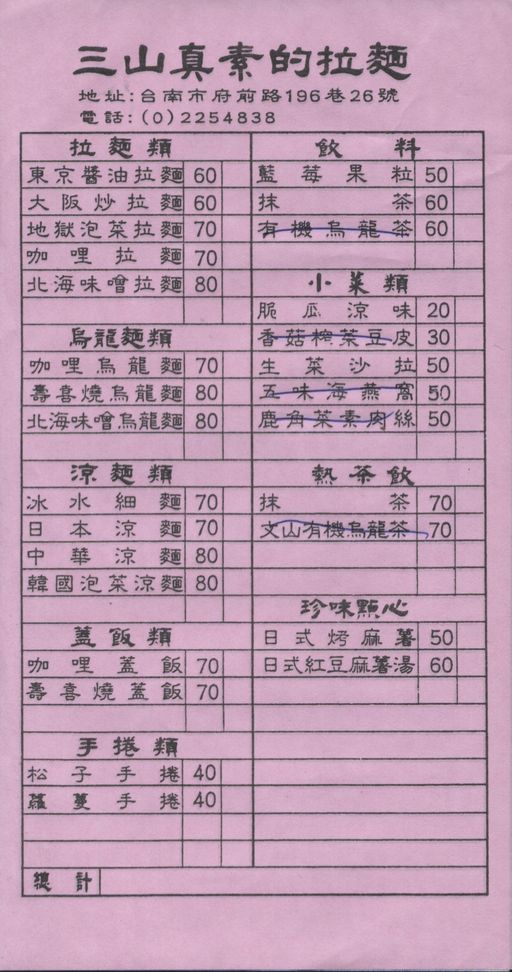 三山真素的拉麵
地址:台南市府前路196巷26號
電話:(0)2254838
拉麵類
東京醬油拉麵 60
大阪炒拉麵 60
地獄泡菜拉麵 70
咖哩拉麵 70
北海味噌拉麵 80
烏龍麵類
咖哩烏龍麵 70
壽喜燒烏龍麵 80
北海味噌烏龍麵 80
涼麵類
冰水細麵 70
日本涼麵 70
中華涼麵 80
韓國泡菜涼麵 80
蓋飯類
咖哩蓋飯 70
壽喜燒蓋飯 70
手捲類
松子手捲 40
蘿蔓手捲 40
飲料
藍莓果粒 50
抹茶 60
有機烏龍茶 60
小菜類
脆瓜涼味 20
香菇榨菜豆皮 30
生菜沙拉 50
五味海燕窩 50
鹿角菜素肉絲 50
熱茶飲
抹茶 70
文山有機烏龍茶 70
珍味點心
日式烤麻薯 50
日式紅豆麻薯湯 60
總計